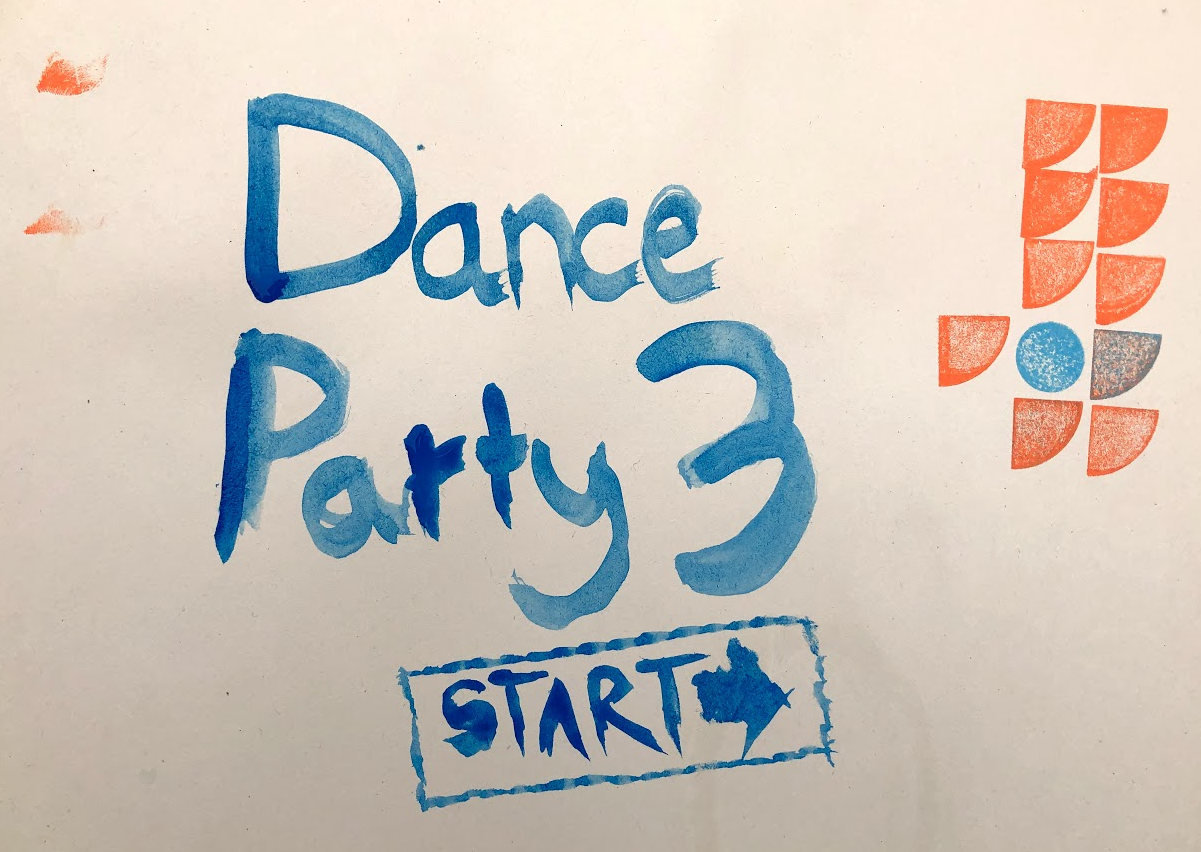 Dance
Party 3
START